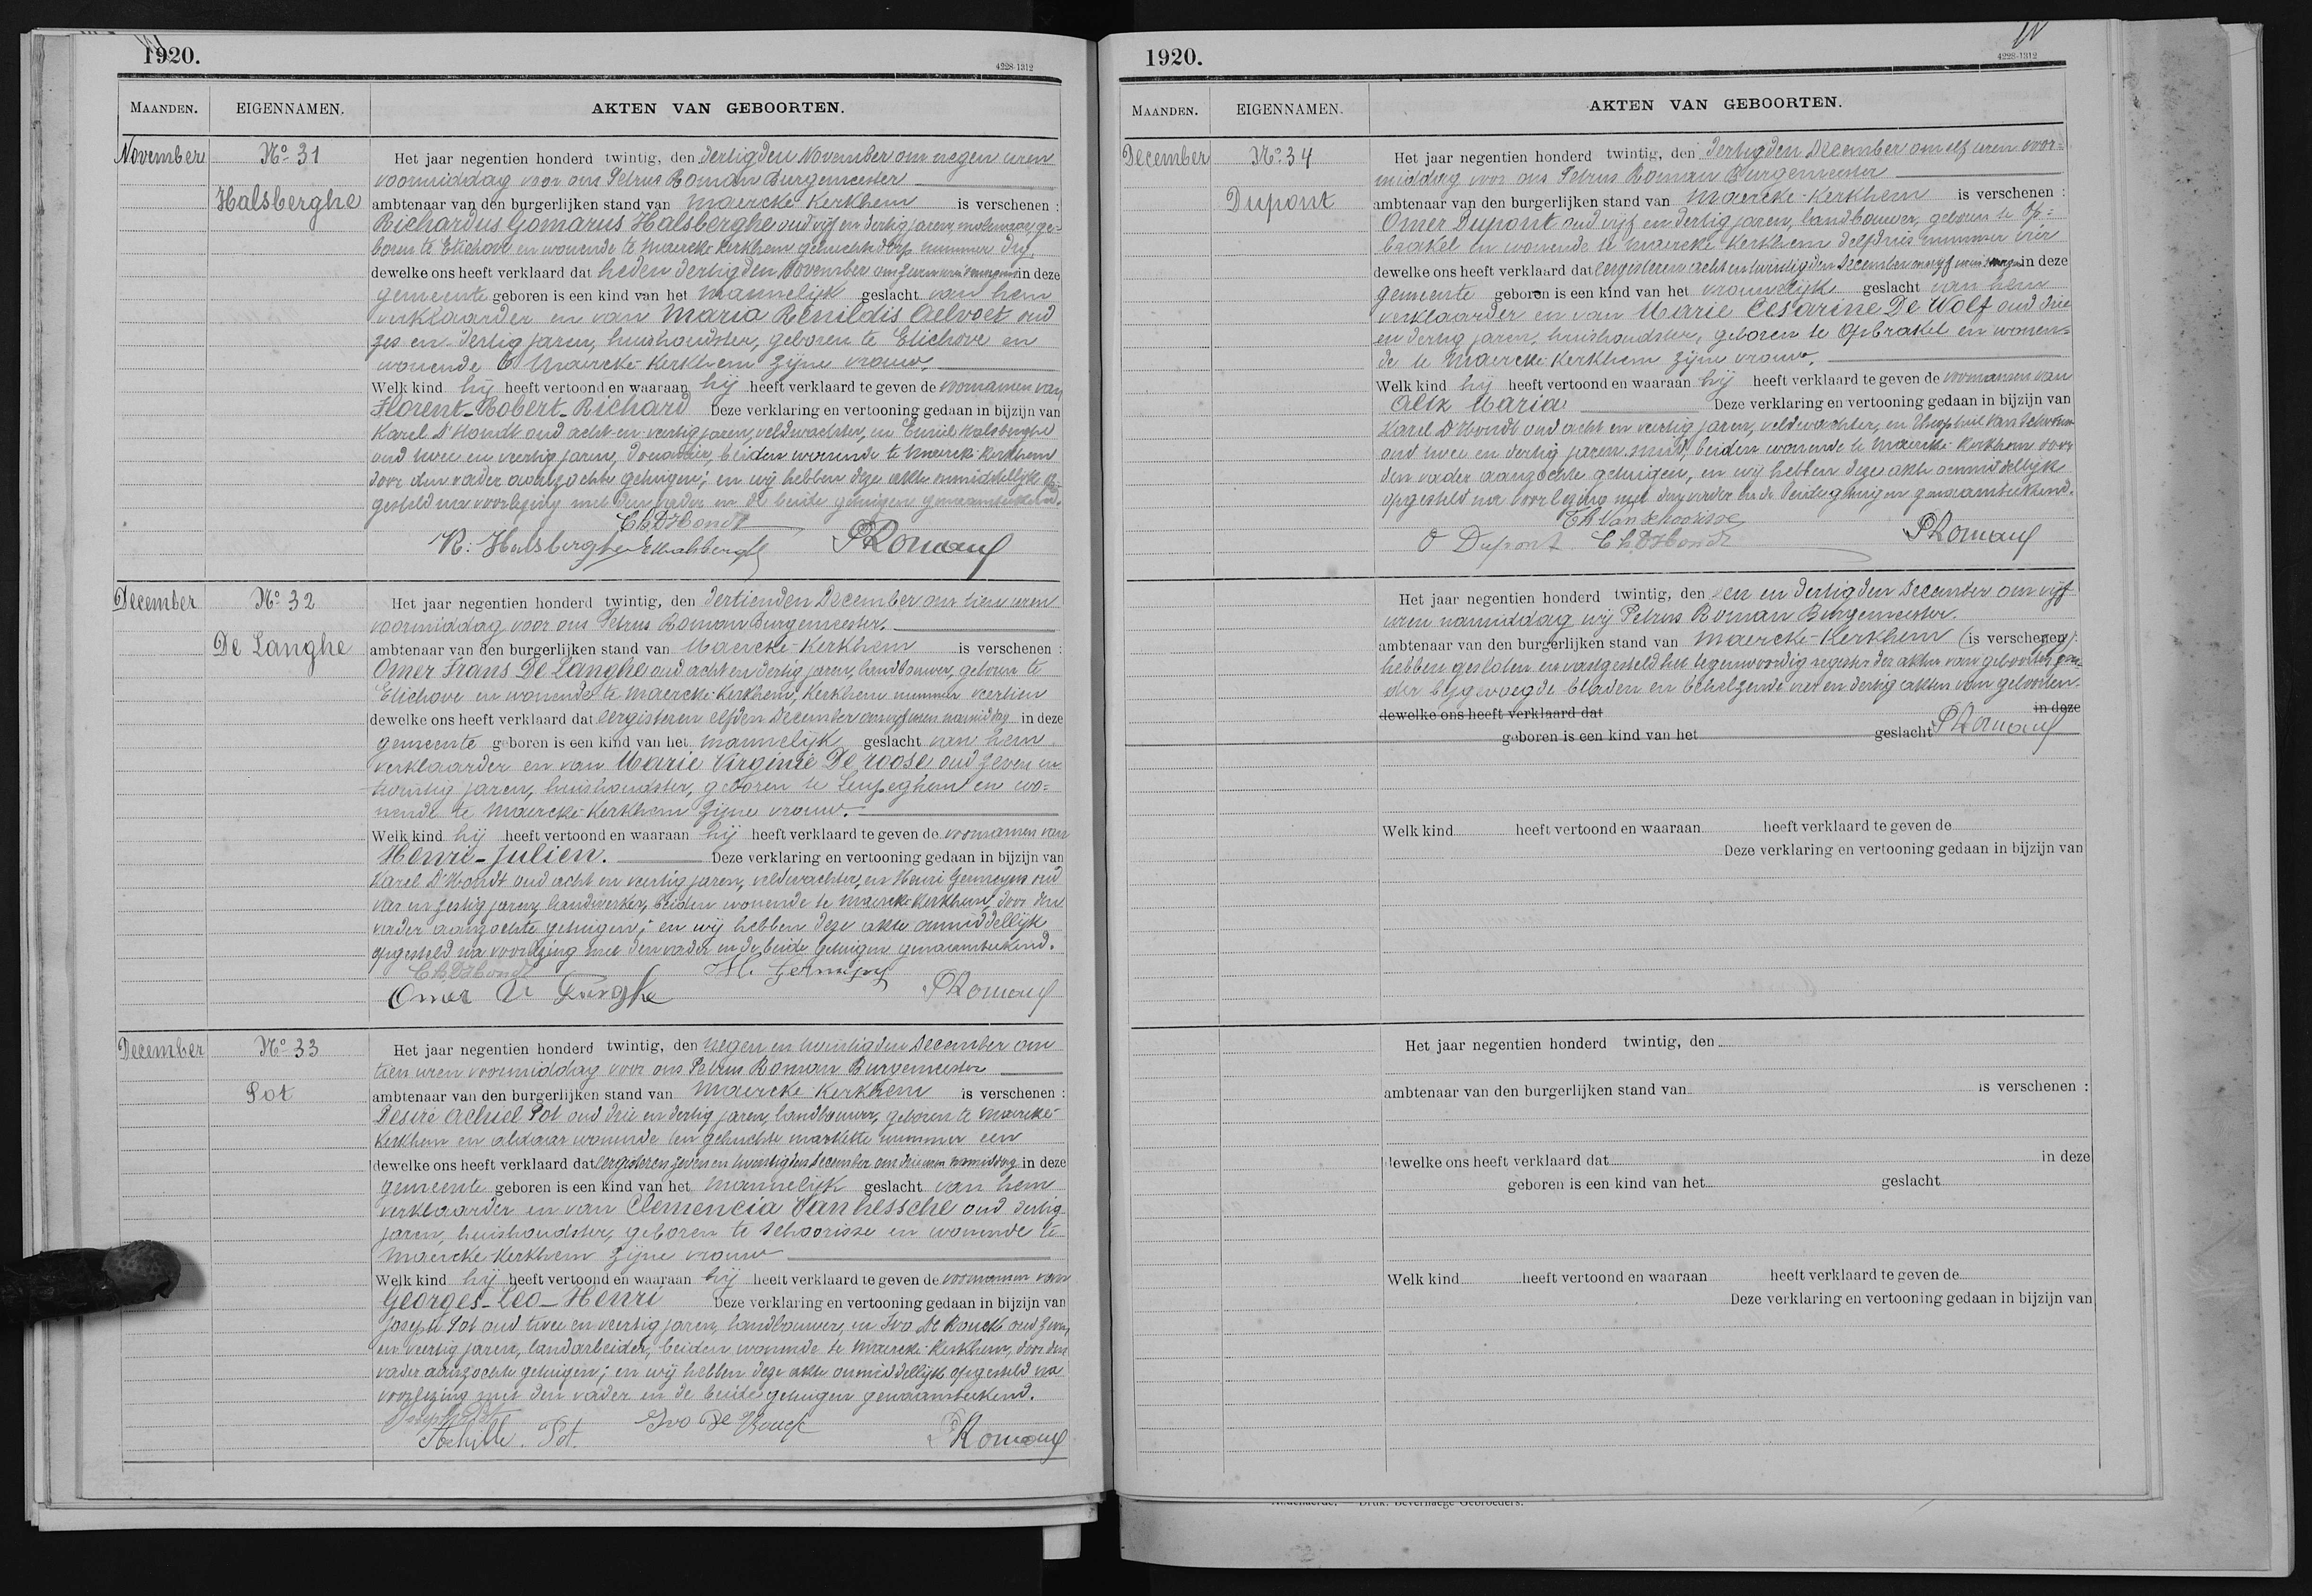 1920.
4228-1312
MAANDEN. EIGENNAMEN. AKTEN VAN GEBOORTEN.
November No 31 Het jaar negentien honderd twintig, den dertigden November om negen uren
voormiddag voor ons Petrus Roman Burgemeester
Halsberghe ambtenaar van den burgerlijken stand van Maercke Kerkhem is verschenen :
Richardus Gomarus Halsberghe oud vijf en dertig jaren, molenaar, ge-
boren te Etichove en wonende te Maercke Kerkhem gehucht dorp nummer dry,
dewelke ons heeft verklaard dat heden dertigden November om in deze
gemeente geboren is een kind van het mannelijk geslacht van hem
verklaarder en van Maria Renildis Aelvoet oud
zes en dertig jaren, huishoudster, geboren te Etichove en
wonende te Maercke-Kerkhem zijne vrouw.
Welk kind hij heeft vertoond en waaraan hij heeft verklaard te geven de voornamen van
Florent-Robert-Richard Deze verklaring en vertooning gedaan in bijzijn van
Karel D'Hondt oud acht-en-veertig jaren, veldwachter, en Emiel Halsberghe
oud twee en veertig jaren, douanier, beiden wonende te Maercke-Kerkhem
door den vader aanzochte getuigen; en wij hebben deze akte onmiddellijk op-
gesteld na voorlezing met den vader en de beide getuigen genaamteekend.
Ch. D'Hondt
R. Halsberghe E Halsberghe PRoman
December No 32 Het jaar negentien honderd twintig, den dertienden December om tien uren
voormiddag voor ons Petrus Roman Burgemeester.
De Langhe ambtenaar van den burgerlijken stand van Maercke-Kerkhem is verschenen :
Omer Frans De Langhe oud acht en dertig jaren, landbouwer, geboren te
Etichove en wonende te Maercke-Kerkhem, Kerkhem nummer veertien
dewelke ons heeft verklaard dat eergisteren elfden December om vijf uren namiddag in deze
gemeente geboren is een kind van het mannelijk geslacht van hem
verklaarder en van Marie Virginie De roose oud zeven en
twintig jaren, huishoudster, geboren te Leupeghem en wo-
nende te Maercke-Kerkhem zijne vrouw.
Welk kind hij heeft vertoond en waaraan hij heeft verklaard te geven de voornamen van
Henri-Julien. Deze verklaring en vertooning gedaan in bijzijn van
Karel D'Hondt oud acht en veertig jaren, veldwachter, en Henri oud
en zestig jaren, handwerker, beiden wonende te Maercke Kerkhem, door den
vader aanzochte getuigen; en wij hebben deze akte onmiddellijk
opgesteld na voorlezing met den vader en de beide getuigen genaamteekend.
Ch. D'Hondt H.
Omer De Langhe PRoman
December No 33 Het jaar negentien honderd twintig, den negen en twintigden December om
tien uren voormiddag voor ons Petrus Roman Burgemeester
Pot ambtenaar van den burgerlijken stand van Maercke Kerkhem is verschenen :
Desiré Achiel Pot oud drie en dertig jaren, landbouwer, geboren te Maercke-
Kerkhem en aldaar wonende ten gehuchte markette nummer een
dewelke ons heeft verklaard dat eergisteren zeven en twintigden December om drie uren namiddag in deze
gemeente geboren is een kind van het mannelijk geslacht van hem
verklaarder en van Clemencia Vanhessche oud dertig
jaren, huishoudster, geboren te Schoorisse en wonende te
Maercke-Kerkhem zijne vrouw
Welk kind hij heeft vertoond en waaraan hij heeft verklaard te geven de voornamen van
Georges-Leo-Henri Deze verklaring en vertooning gedaan in bijzijn van
Joseph Pot oud twee en veertig jaren, landbouwer, en Ivo De Rouck oud zeven
en veertig jaren, landarbeider, beiden wonende te Maercke-Kerkhem, door den
vader aanzochte getuigen; en wij hebben deze akte onmiddellijk opgesteld na
voorlezing met den vader en de beide getuigen genaamteekend.
Joseph Pot Ivo De Rouck
Achille Pot. PRoman
1920.
4228-1312
MAANDEN. EIGENNAMEN. AKTEN VAN GEBOORTEN.
December No 34 Het jaar negentien honderd twintig, den dertigden December om elf uren voor-
middag voor ons Petrus Roman Burgemeester
Dupont ambtenaar van den burgerlijken stand van Maercke-Kerkhem is verschenen :
Omer Dupont oud vijf en dertig jaren, landbouwer, geboren te Op-
brakel en wonende te Maercke Kerkhem nummer vier
dewelke ons heeft verklaard dat eergisteren acht en twintigden December om vijf uren in deze
gemeente geboren is een kind van het vrouwelijk geslacht van hem
verklaarder en van Marie Cesarine De Wolf oud drie
en dertig jaren, huishoudster, geboren te Opbrakel en wonen-
de te Maercke-Kerkhem zijne vrouw.
Welk kind hij heeft vertoond en waaraan hij heeft verklaard te geven de voornamen van
Alix Maria Deze verklaring en vertooning gedaan in bijzijn van
Karel D'Hondt oud acht en veertig jaren, veldwachter, en Theophiel Van Schoorisse
oud twee en dertig jaren smid, beiden wonende te Maercke-Kerkhem door
den vader aanzochte getuigen, en wij hebben deze akte onmiddellijk
opgesteld na voorlezing met den vader en de beide getuigen genaamteekend.
Th Van Schoorisse
O Dupont Ch. D'Hondt PRoman
Het jaar negentien honderd twintig, den een en dertigden December om vijf
uren namiddag wij Petrus Roman Burgemeester.
ambtenaar van den burgerlijken stand van Maercke-Kerkhem (is verschenen) :
hebben gesloten en vastgesteld het tegenwoordig register der akten van geboorten,
der bijgevoegde bladen en behelzende vier en dertig akten van geboorten.
dewelke ons heeft verklaard dat in deze
geboren is een kind van het geslacht PRoman
Welk kind heeft vertoond en waaraan heeft verklaard te geven de
Deze verklaring en vertooning gedaan in bijzijn van
Het jaar negentien honderd twintig, den
ambtenaar van den burgerlijken stand van is verschenen :
dewelke ons heeft verklaard dat in deze
geboren is een kind van het geslacht
Welk kind heeft vertoond en waaraan heeft verklaard te geven de
Deze verklaring en vertooning gedaan in bijzijn van
Audenaerde. Druk. Bevernaege Gebroeders.